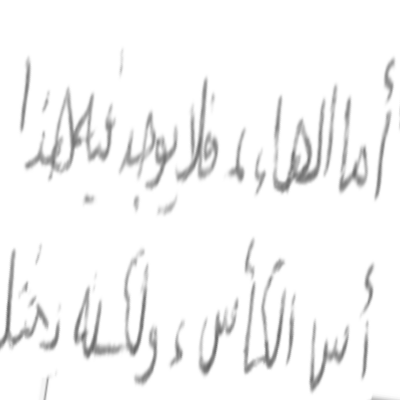 أما الهاء، فلا يوجد فيه هذا
أس الكأس، ولكنه يحتل